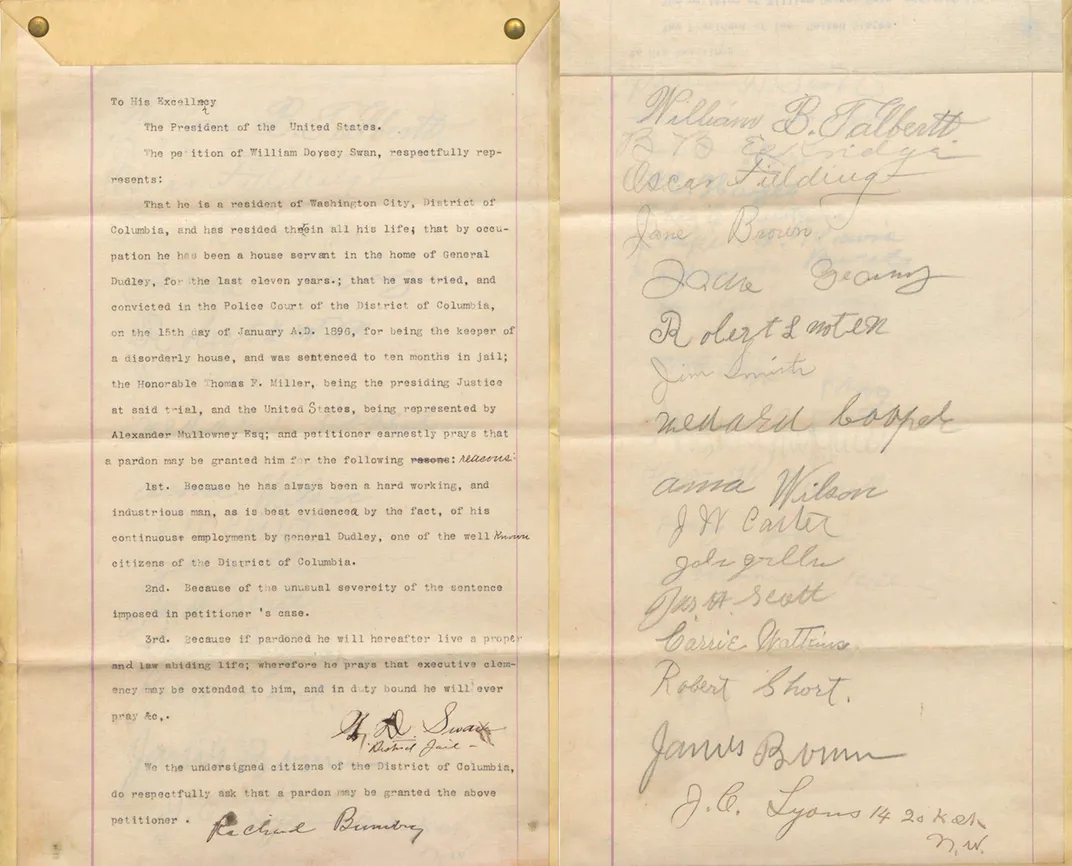 To His Excellecy
The President of the United States.
The petition of William Dorsey Swan, respectfully rep-
resents:
That he is a resident of Washington City, District of
Columbia, and has resided therein all his life; that by occu-
pation he has been a house servant in the home of General
Dudley, for the last eleven years.; that he was tried, and
convicted in the Police Court of the District of Columbia,
on the 15th day of January A.D. 1896, for being the keeper of
a disorderly house, and was sentenced to ten months in jail;
the Honorable Thomas F. Miller, being the presiding Justice
at said trial, and the United States, being represented by
Alexander Mullowney Esq; and petitioner earnestly prays that
a pardon may be granted him for the following resons: reasons:
1st. Because he has always been a hard working, and
industrious man, as is best evidenced by the fact, of his
continuous employment by general Dudley, one of the well known
citizens of the District of Columbia.
2nd. Because of the unusual severity of the sentence
imposed in petitioner 's case.
3rd. Because if pardoned he will hereafter live a proper
and law abiding life; wherefore he prays that executive clem-
ency may be extended to him, and in duty bound he will ever
pray &c,.
W. D. Swan
District Jail -
We the undersigned citizens of the District of Columbia,
do respectfully ask that a pardon may be granted the above
petitioner .
William B. Talbertt
Oscar Fillding
Jane Brown.
Jim Smith
Cooper
anna Wilson
J W Carter
Jas H Scott
Carrie Watkins
Robert Short.
James Brown
J.C. Lyons 14 20 K st
N.W.